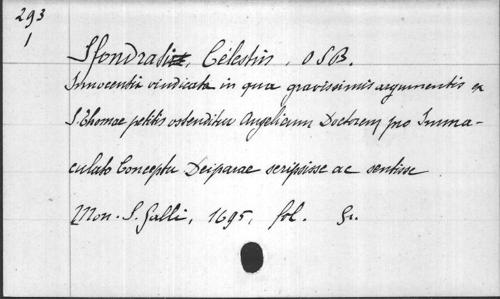 293
1
Sfondrati, Célestin, OSB.
Innocentia vindicata in qua gravissimis argumentis ex
S. Thomae petitis ostenditur Angelicum Doctorem pro Imma-
culato Conceptu Deiparae scripsisse ac sentiisse
Mon. S. Galli, 1695, fol.